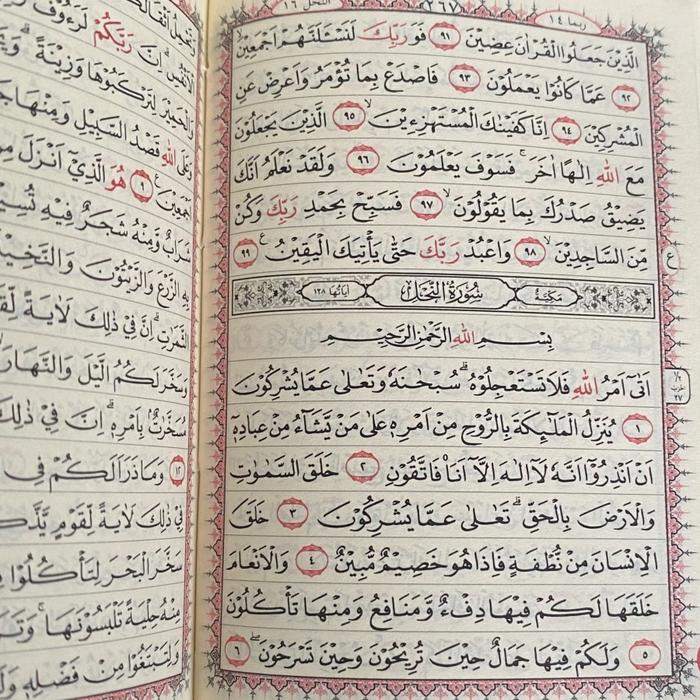 ربما ١٤ ٢٦٧ النحل ١٦
الَّذِينَ جَعَلُوا الْقُرْاٰنَ عِضِينَ ٩١ فَوَرَبِّكَ لَنَسْـَٔلَنَّهُمْ اَجْمَعِينَۙ
٩٢ عَمَّا كَانُوا يَعْمَلُونَ ٩٣ فَاصْدَعْ بِمَا تُؤْمَرُ وَاَعْرِضْ عَنِ
الْمُشْرِكِينَ ٩٤ اِنَّا كَفَيْنٰكَ الْمُسْتَهْزِءِينَۙ ٩٥ الَّذِينَ يَجْعَلُونَ
مَعَ اللّٰهِ اِلٰهًا اٰخَرَۚ فَسَوْفَ يَعْلَمُونَ ٩٦ وَلَقَدْ نَعْلَمُ اَنَّكَ
يَضِيقُ صَدْرُكَ بِمَا يَقُولُونَۙ ٩٧ فَسَبِّحْ بِحَمْدِ رَبِّكَ وَكُنْ
مِنَ السَّاجِدِينَۙ ٩٨ وَاعْبُدْ رَبَّكَ حَتّٰى يَأْتِيَكَ الْيَقِينُ ٩٩ ع
مَكِّيَّةٌ سُورَةُ النَّحْلِ اٰيَاتُهَا ١٢٨
بِسْمِ اللّٰهِ الرَّحْمٰنِ الرَّحِيمِ
اَتٰٓى اَمْرُ اللّٰهِ فَلَا تَسْتَعْجِلُوهُۜ سُبْحَانَهُ وَتَعَالٰى عَمَّا يُشْرِكُونَ
١ يُنَزِّلُ الْمَلٰٓئِكَةَ بِالرُّوحِ مِنْ اَمْرِهِ عَلٰى مَنْ يَشَٓاءُ مِنْ عِبَادِهٓ
اَنْ اَنْذِرُٓوا اَنَّهُ لَٓا اِلٰهَ اِلَّٓا اَنَا۬ فَاتَّقُونِ ٢ خَلَقَ السَّمٰوَاتِ
وَالْاَرْضَ بِالْحَقِّۜ تَعَالٰى عَمَّا يُشْرِكُونَ ٣ خَلَقَ
الْاِنْسَانَ مِنْ نُطْفَةٍ فَاِذَا هُوَ خَصِيمٌ مُبِينٌ ٤ وَالْاَنْعَامَ
خَلَقَهَا لَكُمْ فِيهَا دِفْءٌ وَمَنَافِعُ وَمِنْهَا تَأْكُلُونَ
٥ وَلَكُمْ فِيهَا جَمَالٌ حِينَ تُرِيحُونَ وَحِينَ تَسْرَحُونَ ٦
وَتَحْمِلُ اَثْقَالَكُمْ
الْاَنْفُسِۜ اِنَّ رَبَّكُمْ لَرَؤُفٌ
وَالْحَمِيرَ لِتَرْكَبُوهَا وَزِينَةًۜ
وَعَلَى اللّٰهِ قَصْدُ السَّبِيلِ وَمِنْهَا
اَجْمَعِينَ ٩ هُوَ الَّذِٓي اَنْزَلَ مِنَ
شَرَابٌ وَمِنْهُ شَجَرٌ فِيهِ
بِهِ الزَّرْعَ وَالزَّيْتُونَ
الثَّمَرَاتِۜ اِنَّ فِي ذٰلِكَ لَاٰيَةً
وَسَخَّرَ لَكُمُ الَّيْلَ وَالنَّهَارَۙ
مُسَخَّرَاتٌ بِاَمْرِهِۜ اِنَّ فِي ذٰلِكَ
١٢ وَمَا ذَرَاَ لَكُمْ فِي
فِي ذٰلِكَ لَاٰيَةً لِقَوْمٍ
سَخَّرَ الْبَحْرَ لِتَأْكُلُوا
مِنْهُ حِلْيَةً تَلْبَسُونَهَاۚ
وَلِتَبْتَغُوا مِنْ فَضْلِهِ